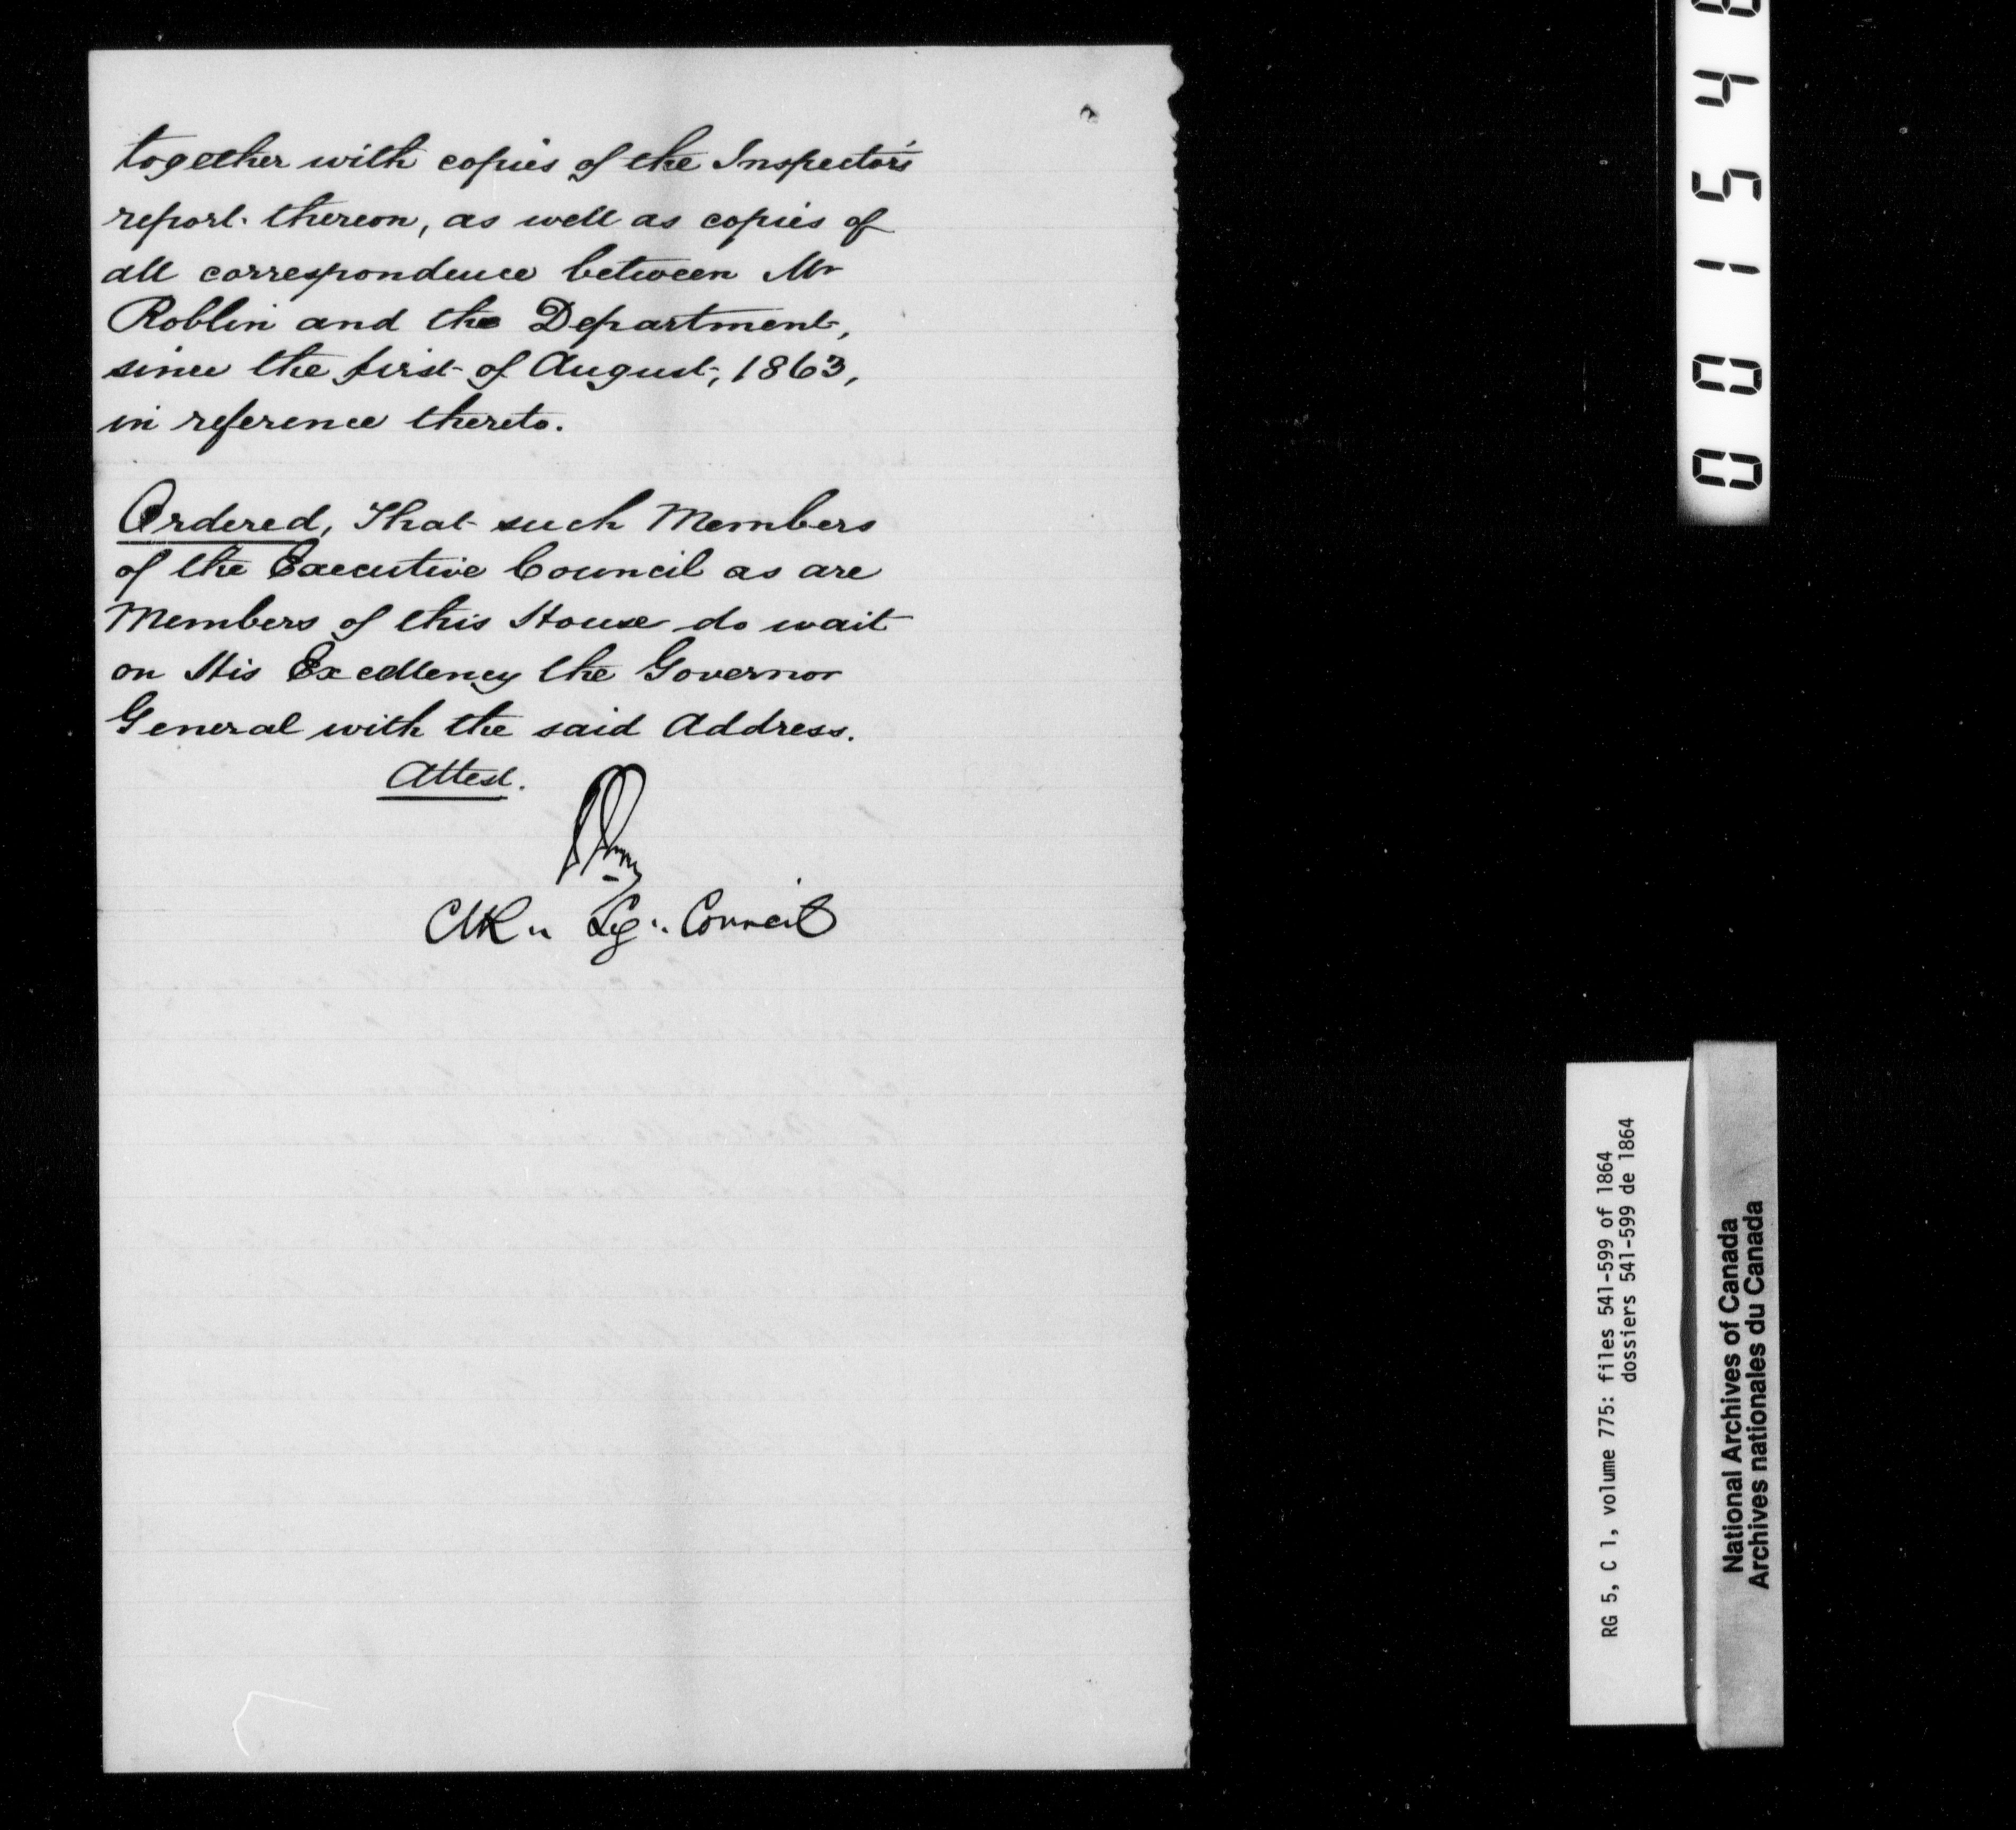 together with copies of the Inspector's
report thereon, as well as copies of
all correspondence between Mr
Roblin and the Department,
since the first of August, 1863,
in reference thereto.
Ordered, That such Members
of the Executive Council as are
Members of this House do wait
on His Excellency the Governor
General with the said Address.
Attest.
Clk.. Leg.. Council
0 0 1 5 4
RG 5, C 1, volume 775: files 541-599 of 1864
dossiers 541-599 de 1864
National Archives of Canada
Archives nationales du Canada